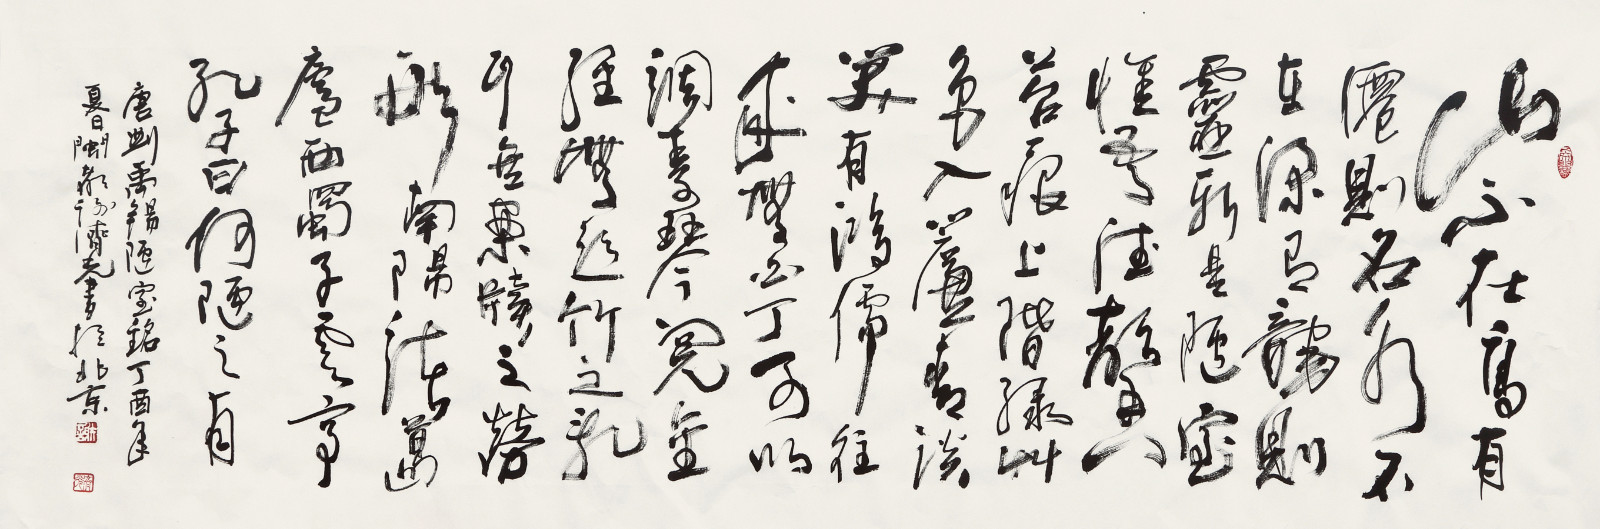 山不在高有
僊則名水不
在深有龍則
靈斯是陋室
惟吾德馨
苔痕上階綠艸
色入簾青談
笑有鴻儒往
來無白丁可以
調素琴閱金
經無絲竹之亂
耳無案牘之勞
形南陽諸葛
廬西蜀子雲亭
孔子曰何陋之有
唐劉禹錫陋室銘丁酉年
夏日閩光書於北京